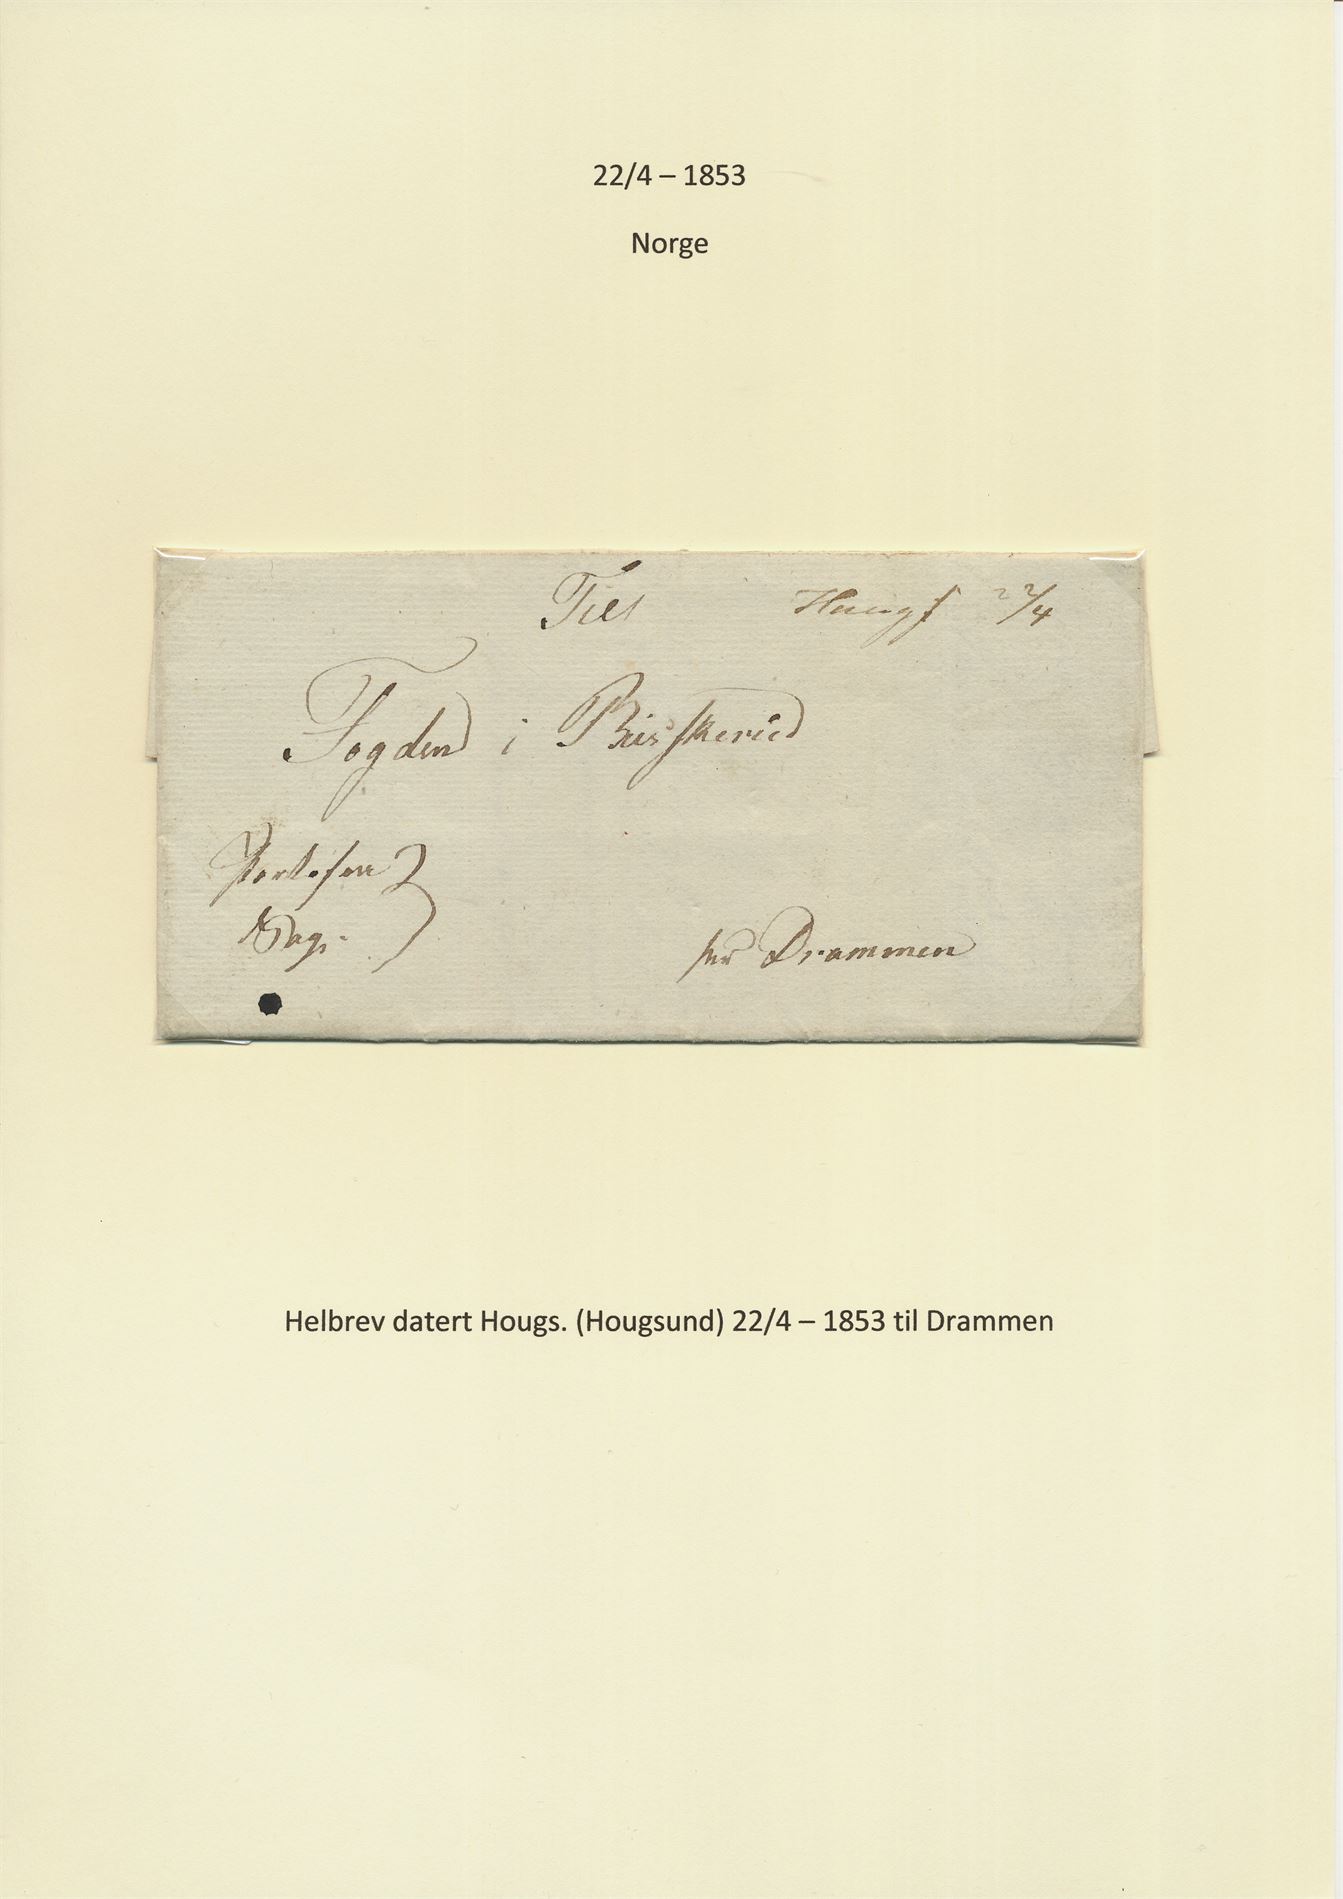 22/4 – 1853
Norge
Till Hougs 22/4
Fogden i Buskerud
Portofrie
Sag.
per Drammen
Helbrev datert Hougs. (Hougsund) 22/4 – 1853 til Drammen